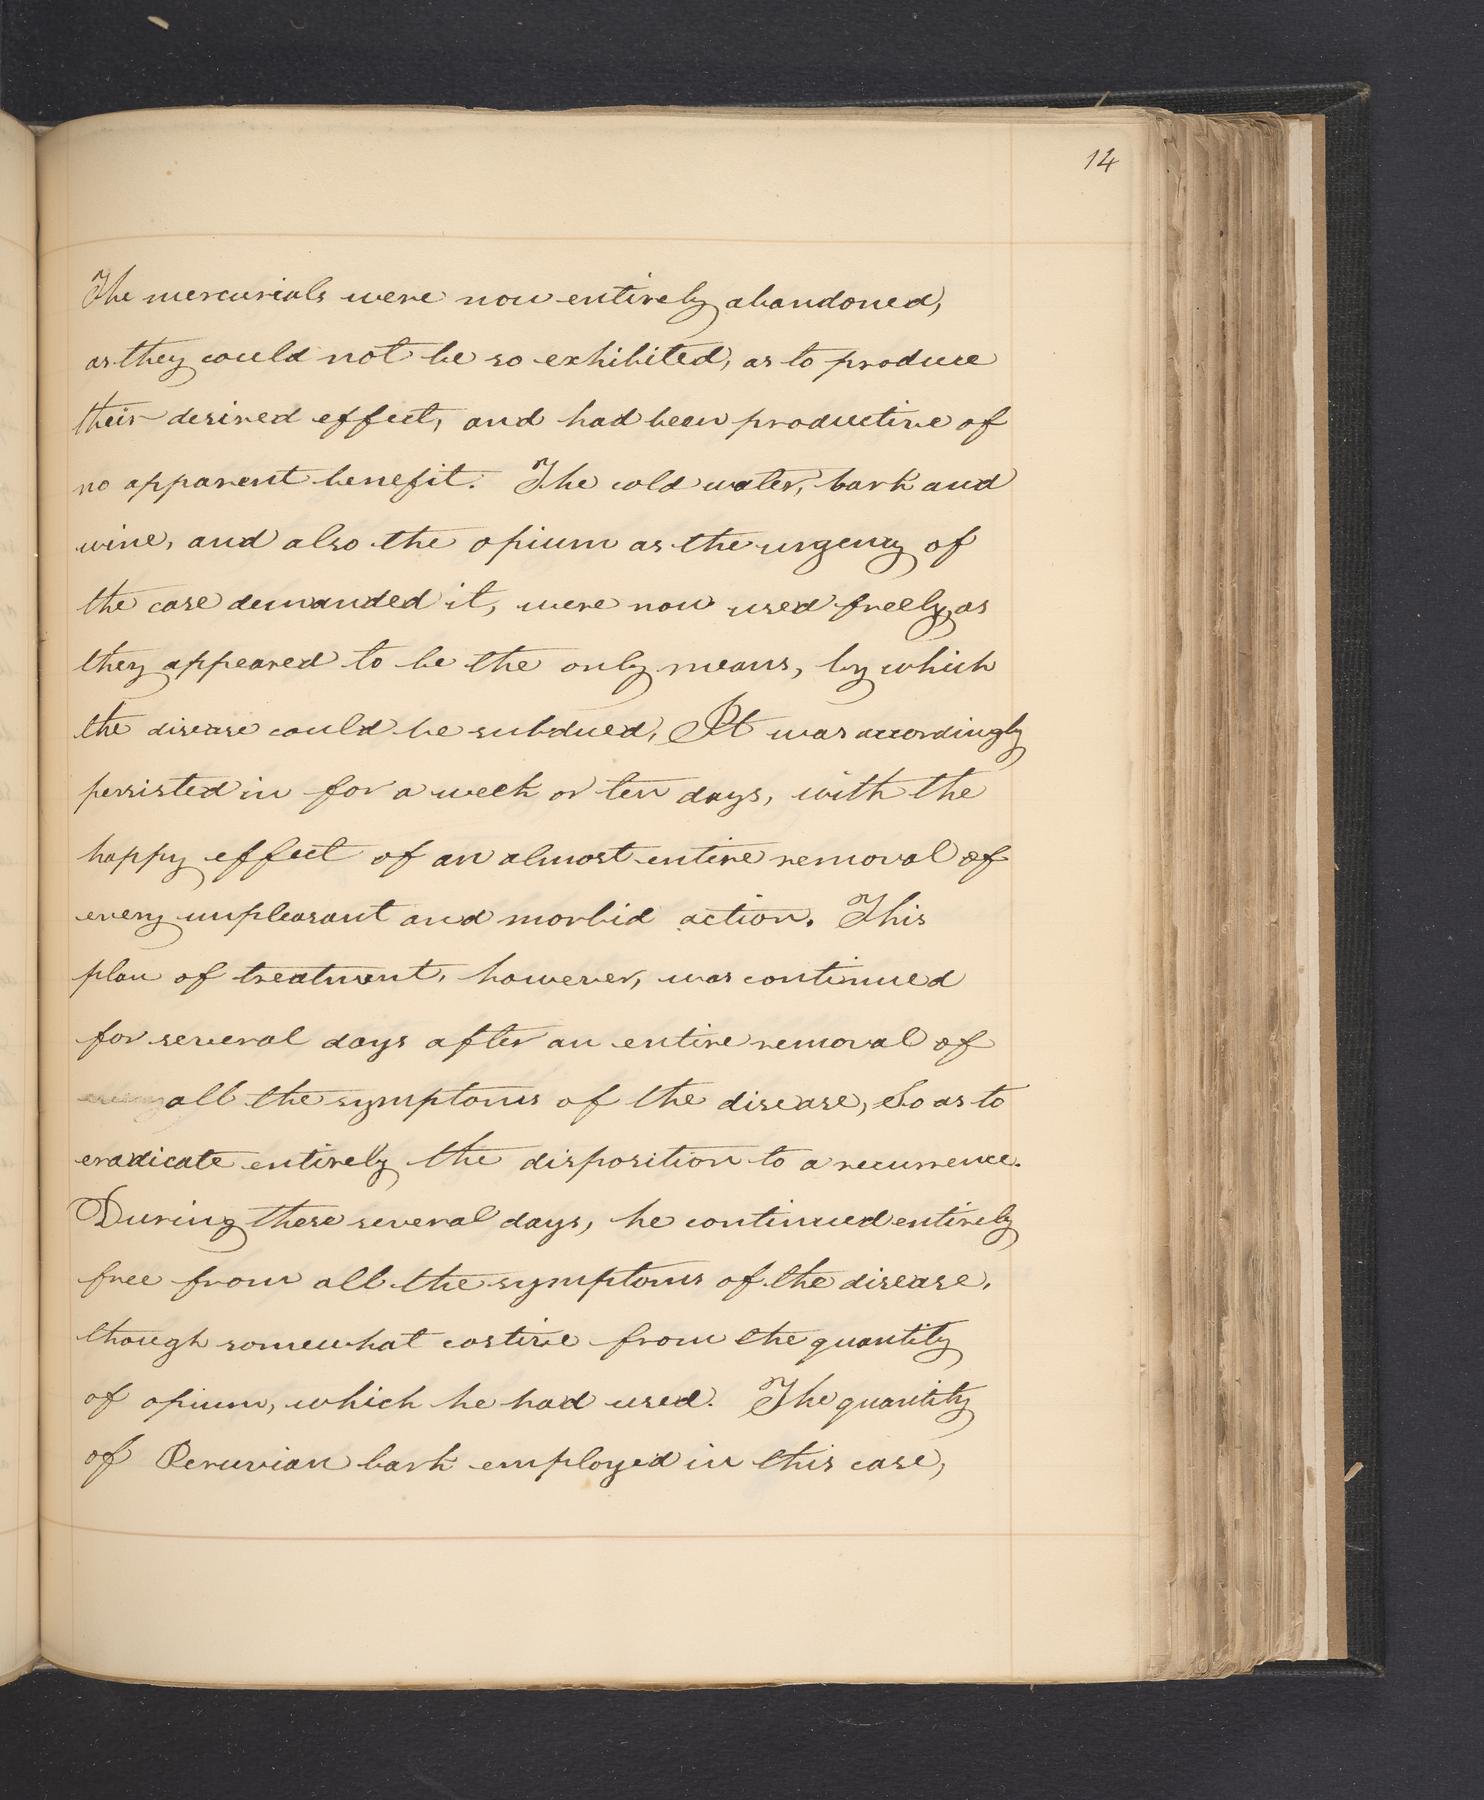 14
The mercurials were now entirely abandoned,
as they could not be so exhibited, as to produce
their desired effect, and had been productive of
no apparent benefit. The cold water, bark and
wine, and also the opium as the urgency of
the case demanded it, were now used freely, as
they appeared to be the only means, by which
the disease could be subdued, It was accordingly
persisted in for a week or ten days, with the
happy effect of an almost entire removal of
every unpleasant and morbid action. This
plan of treatment, however, was continued
for several days after an entire removal of
all the symptoms of the disease, So as to
eradicate entirely the disposition to a recurrence.
During these several days, he continued entirely
free from all the symptoms of the disease,
though somewhat costive from the quantity
of opium, which he had used. The quantity
of Peruvian bark employed in this case,